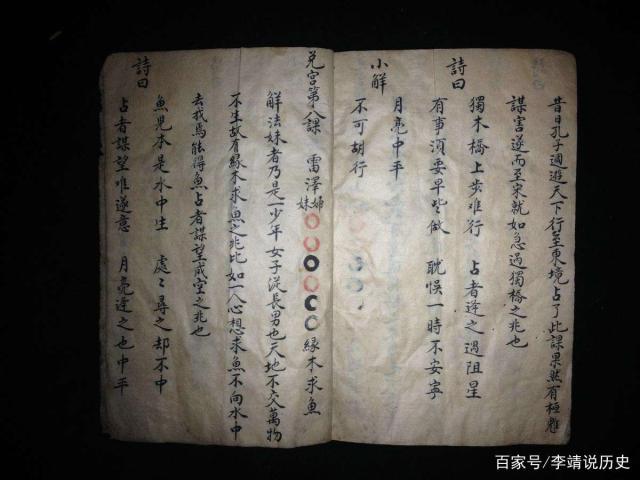 昔日孔子週遊天下行至東境占了此課果然有桓魋
謀害遂而至宋就如急過獨橋之兆也
詩曰
獨木橋上步难行 占者逢之過阻星
有事須要早些做 耽悮一時不安寧
小解
月亮中平
不可胡行
兌宮第八課 雷澤歸妹 緣木求魚
解法妹者乃是一少年女子從長男也天地不交萬物
不生故有緣木求魚之兆比如一人心想求魚不向水中
去找焉能得魚占者謀望咸宮之兆也
詩曰
魚兒本是水中生 處〻尋之却不中
占者謀望唯遂意 月亮逢之也中平
百家号/李靖说历史